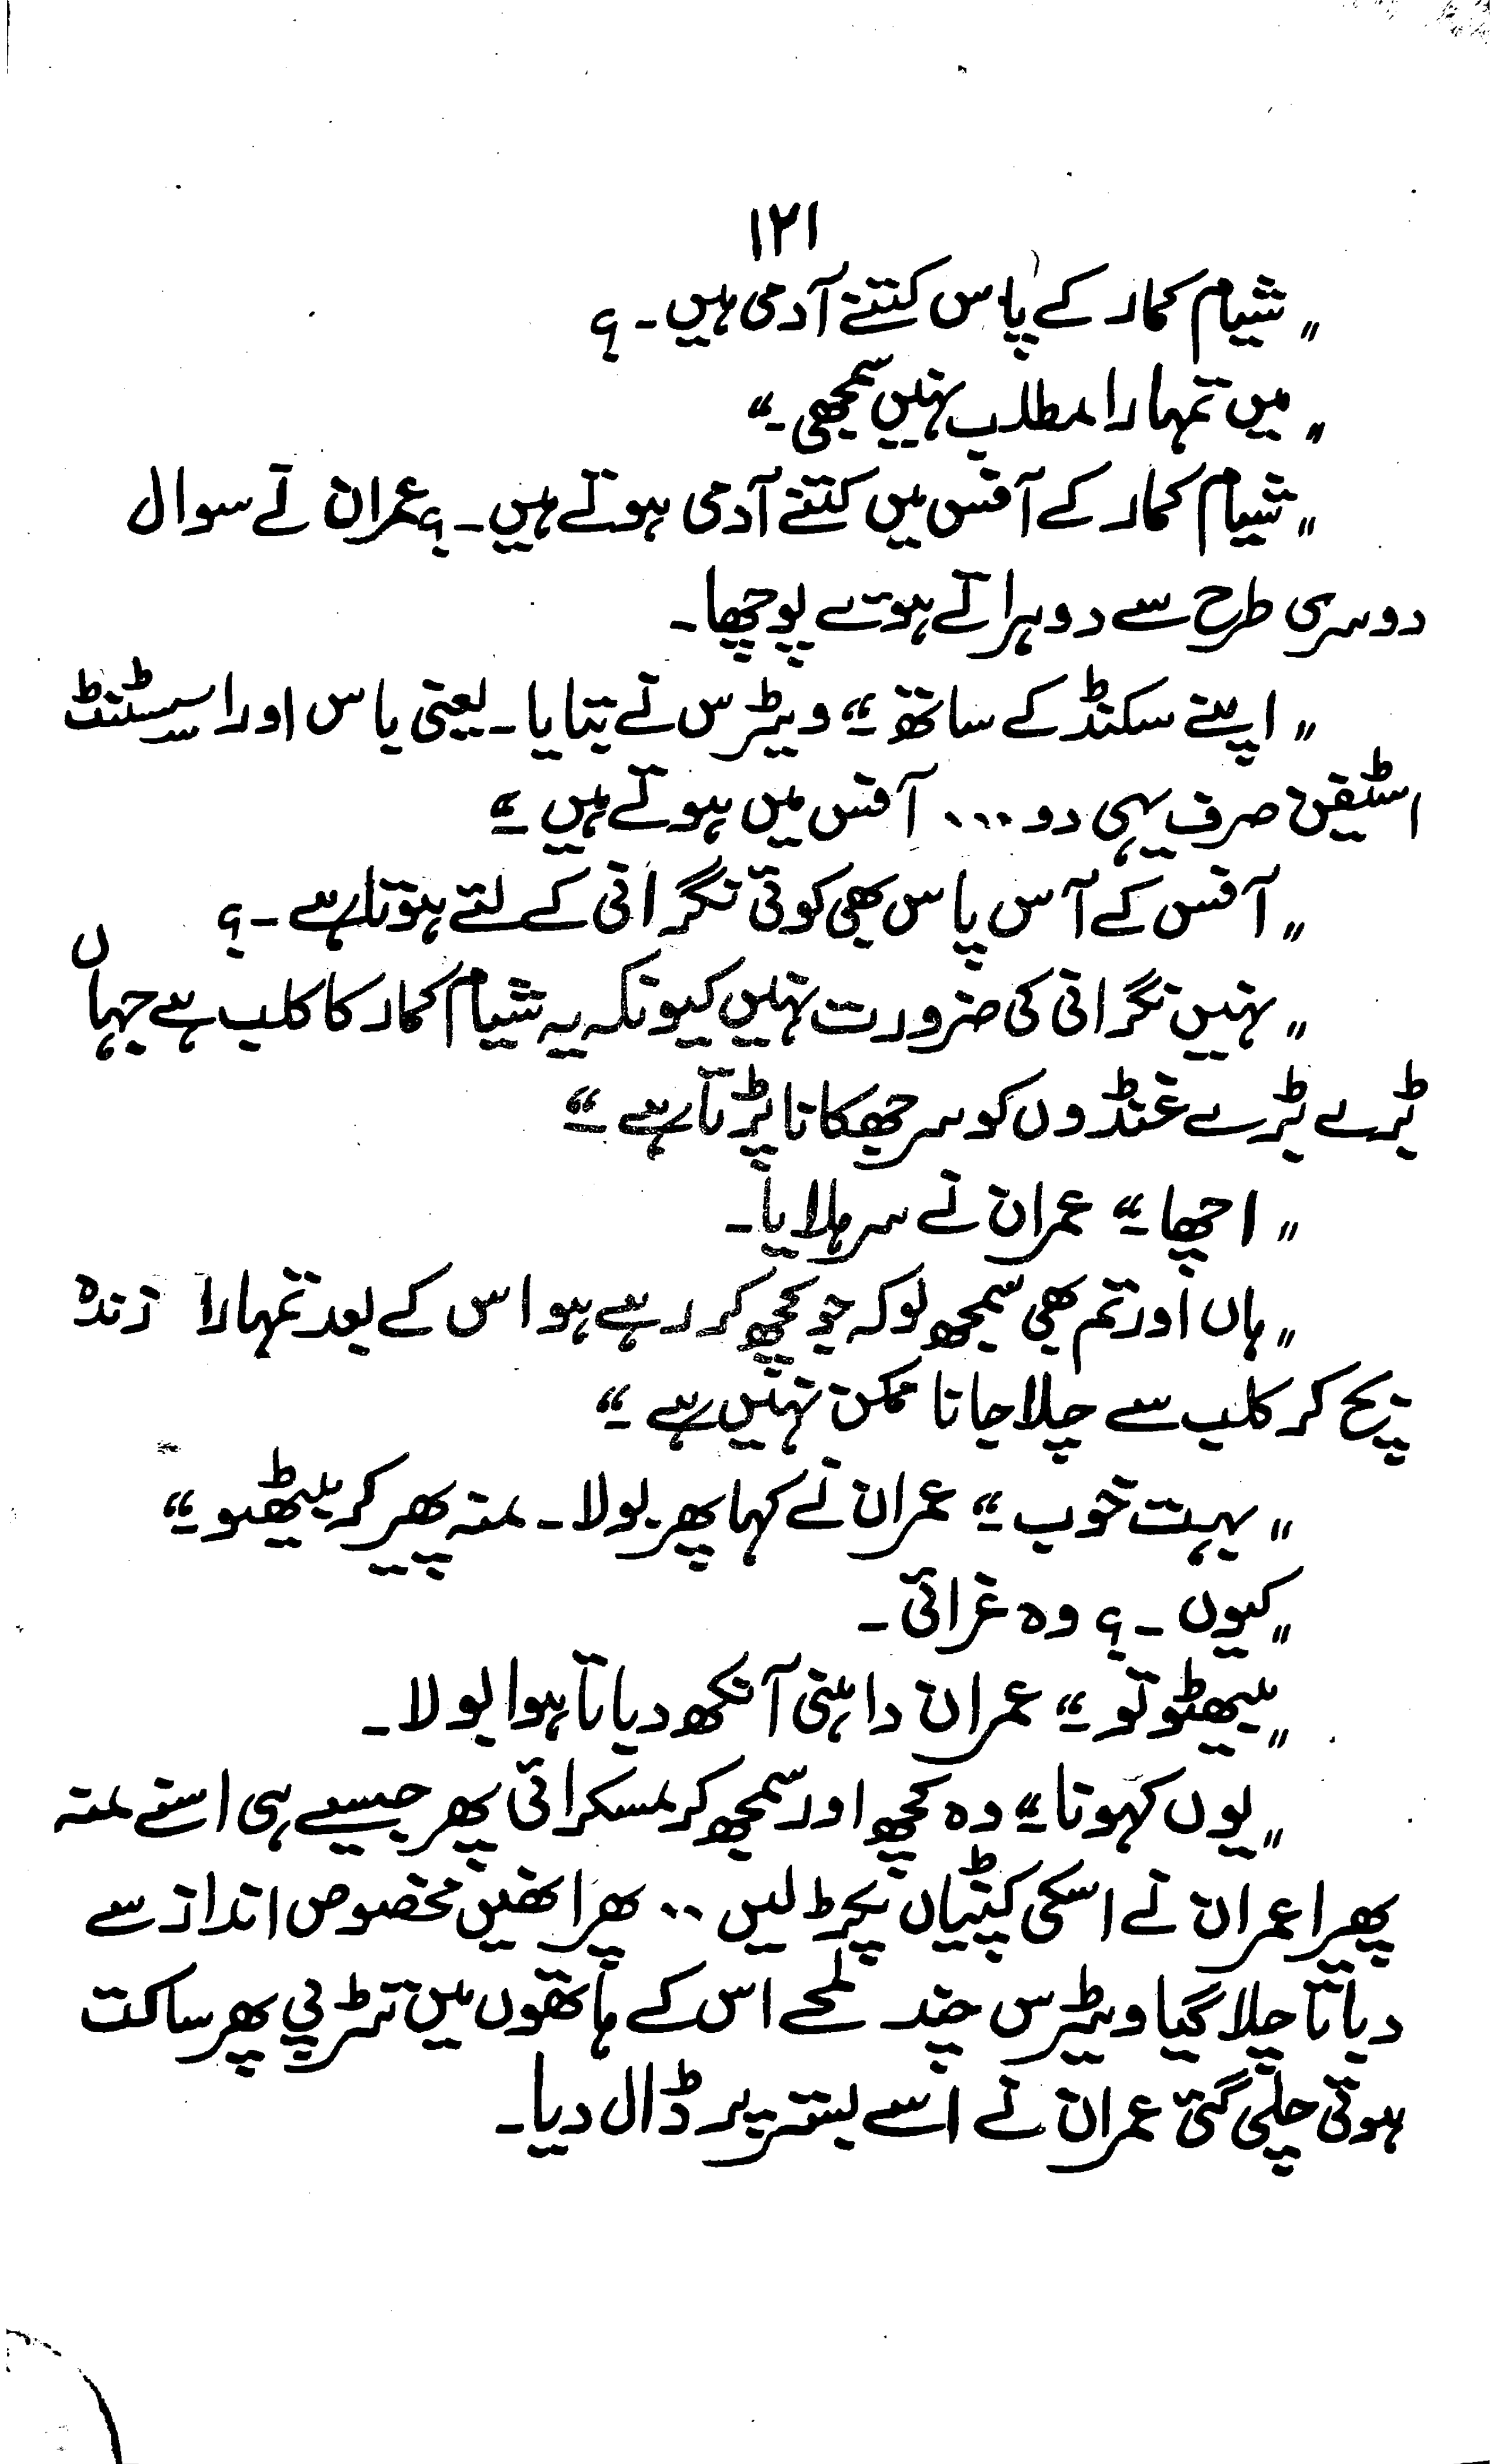 ۱۲۱
"شیام کمار کے پاس کتنے آدمی ہیں۔؟
"میں تمہارا مطلب نہیں سمجھی۔"
"شیام کمار کے آفس میں کتنے آدمی ہوتے ہیں۔؟ عمران نے سوال
دوسری طرح سے دوہراتے ہوتے پوچھا۔
"اپنے سکنڈ کے ساتھ۔" ویٹرس نے بتایا۔ یعنی باس اور اسیسٹنٹ
اسٹیفن صرف یہی دو... آفس میں ہوتے ہیں۔"
"آفس کے آس پاس بھی کوئی نگرانی کے لئے ہوتا ہے۔؟
"نہیں نگرانی کی ضرورت نہیں کیونکہ یہ شیام کمار کا کلب ہے جہاں
بڑے بڑے غنڈوں کو سر جھکانا پڑتا ہے۔"
"اچھا۔" عمران نے سر ہلایا۔
"ہاں اور تم بھی سمجھ لو کہ جو کچھ کر رہے ہو اس کے بعد تمہارا زندہ
بچ کر کلب سے چلا جانا ممکن نہیں ہے۔"
"بہت خوب۔" عمران نے کہا پھر بولا۔ منہ پھیر کر بیٹھو۔"
"کیوں۔؟ وہ غرائی۔
"بیٹھو تو۔" عمران داہنی آنکھ دباتا ہوا بولا۔
"یوں کہو نا۔" وہ کچھ اور سمجھ کر مسکرائی پھر جیسے ہی اسنے منہ
پھیرا عمران نے اسکی کنپٹیاں پکڑ لیں .. پھر انھیں مخصوص انداز سے
دباتا چلا گیا ویٹرس چند لمحے اس کے ہاتھوں میں تڑپی پھر ساکت
ہوتی چلی گئی عمران نے اسے بستر پر ڈال دیا۔